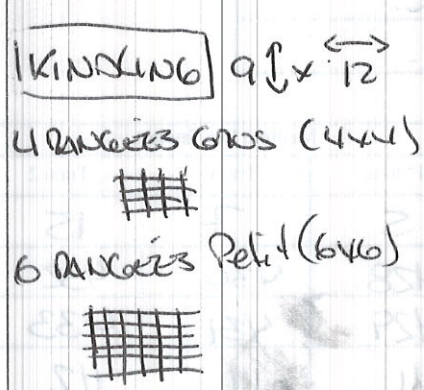 KINDLING 9 ↕ x 12 ↔
4 RANGÉES GROS (4x4)
6 RANGÉES Petit (6x6)